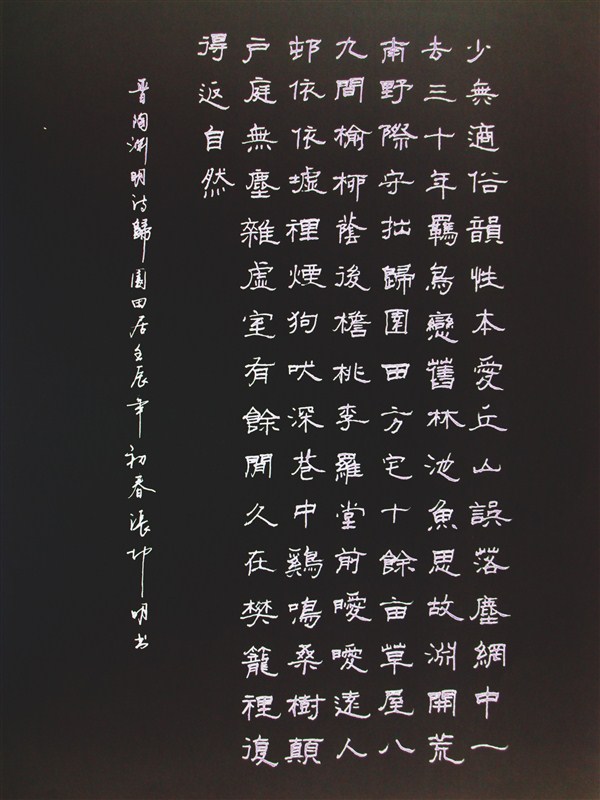 少無適俗韻性本愛丘山誤落塵網中一
去三十年羈鳥戀舊林池魚思故淵開荒
南野際守拙歸園田方宅十餘亩草屋八
九間榆柳蔭後檐桃李羅堂前曖曖遠人
邨依依墟裡煙狗吠深巷中鷄鳴桑樹顛
戶庭無塵雜虛室有餘閒久在樊籠裡復
得返自然
晋陶渊明诗歸園田居壬辰年初春張坤明书